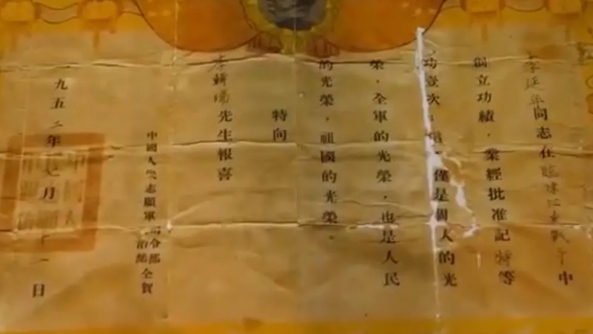 李延年同志在臨津江東戰斗中
創立功績，業經批准記特等
功壹次，這不僅是個人的光
榮，全軍的光榮，也是人民
的光榮，祖國的光榮。
特向
先生報喜
中國人民志願軍司令部
政治部全賀
一九五二年七月